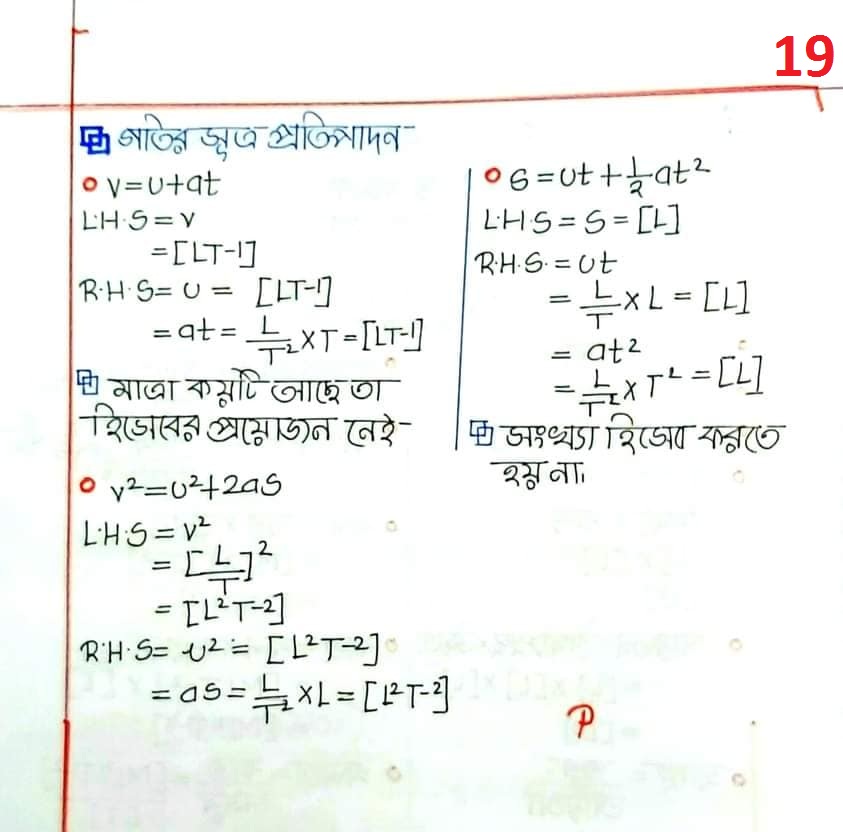 19
গতির সূত্র প্রতিপাদন
v=u+at
L.H.S = v
=[LT-1]
R.H.S= u = [LT-1]
= at = L/T² × T = [LT-1]
মাত্রা কয়টি আছে তা
হিসেবের প্রয়োজন নেই-
v²=u²+2as
L.H.S = v²
= [L/T]²
= [L²T-2]
R.H.S= u² = [L²T-2]
= as = L/T² × L = [L²T-2]
S = ut + 1/2 at²
L.H.S = S = [L]
R.H.S. = ut
= L/T × L = [L]
= at²
= L/T² × T² = [L]
সংখ্যা হিসেব করতে
হয় না।
P